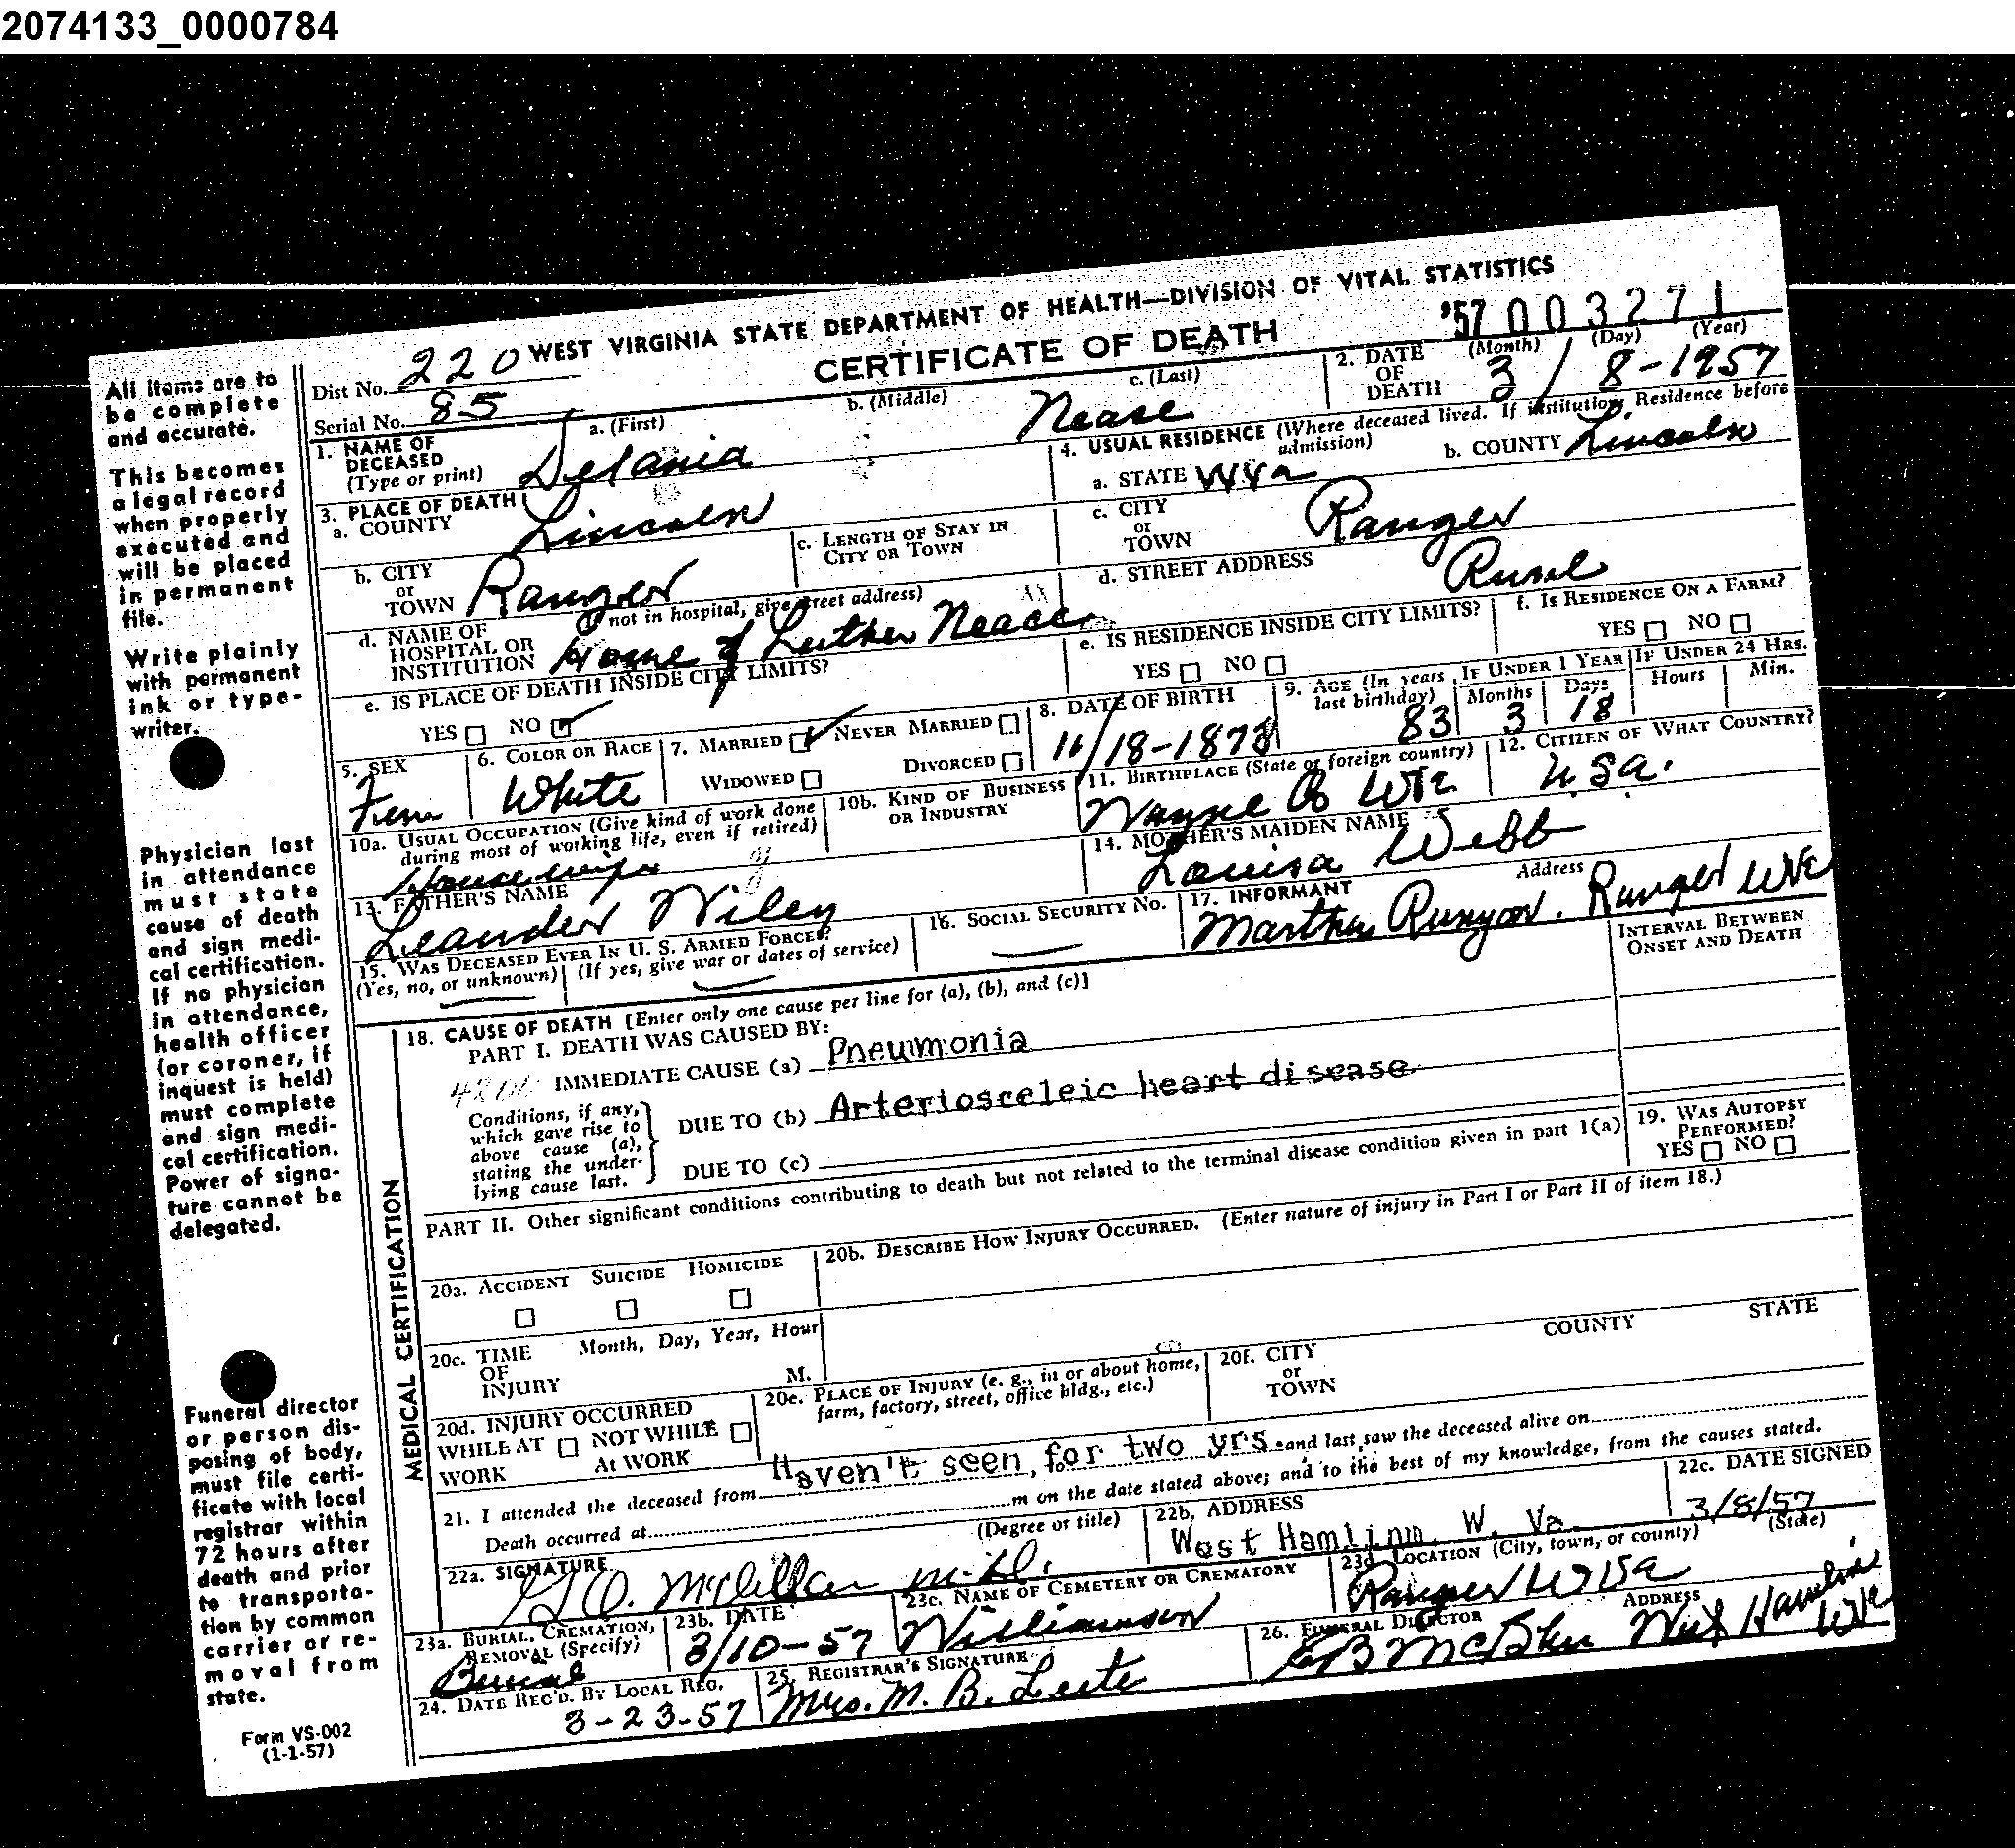 2074133_0000784
WEST VIRGINIA STATE DEPARTMENT OF HEALTH—DIVISION OF VITAL STATISTICS
CERTIFICATE OF DEATH
'57 003271
Dist No. 220
Serial No. 85
1. NAME OF DECEASED (Type or print)
a. (First) b. (Middle) c. (Last)
Delania Nease
2. DATE OF DEATH (Month) (Day) (Year)
3/8-1957
3. PLACE OF DEATH
a. COUNTY Lincoln
b. CITY or TOWN Ranger
c. LENGTH OF STAY IN CITY OR TOWN
d. NAME OF HOSPITAL OR INSTITUTION (If not in hospital, give street address)
Home of Luther Neace
e. IS PLACE OF DEATH INSIDE CITY LIMITS?
YES NO ✓
4. USUAL RESIDENCE (Where deceased lived. If institution, Residence before admission)
a. STATE WVa b. COUNTY Lincoln
c. CITY or TOWN Ranger
d. STREET ADDRESS Rural
e. IS RESIDENCE INSIDE CITY LIMITS?
YES NO
f. IS RESIDENCE ON A FARM?
YES NO
5. SEX Fem
6. COLOR OR RACE White
7. MARRIED ✓ NEVER MARRIED
WIDOWED DIVORCED
8. DATE OF BIRTH 11/18-1873
9. AGE (In years last birthday) 83
IF UNDER 1 YEAR Months 3 Days 18
IF UNDER 24 HRS. Hours Min.
10a. USUAL OCCUPATION (Give kind of work done during most of working life, even if retired)
Housewife
10b. KIND OF BUSINESS OR INDUSTRY
11. BIRTHPLACE (State or foreign country)
Wayne Co WVa
12. CITIZEN OF WHAT COUNTRY?
U.S.a.
13. FATHER'S NAME
Leander Wiley
14. MOTHER'S MAIDEN NAME
Louisa Webb
15. WAS DECEASED EVER IN U. S. ARMED FORCES?
(Yes, no, or unknown) (If yes, give war or dates of service)
16. SOCIAL SECURITY NO.
17. INFORMANT Address
Martha Runyon. Ranger WVa
INTERVAL BETWEEN ONSET AND DEATH
MEDICAL CERTIFICATION
18. CAUSE OF DEATH [Enter only one cause per line for (a), (b), and (c)]
PART I. DEATH WAS CAUSED BY:
IMMEDIATE CAUSE (a) Pneumonia
Conditions, if any, which gave rise to above cause (a), stating the underlying cause last.
DUE TO (b) Arteriosceleic heart disease
DUE TO (c)
PART II. Other significant conditions contributing to death but not related to the terminal disease condition given in part 1(a)
19. WAS AUTOPSY PERFORMED?
YES NO
20a. ACCIDENT SUICIDE HOMICIDE
20b. DESCRIBE HOW INJURY OCCURRED. (Enter nature of injury in Part I or Part II of item 18.)
20c. TIME OF INJURY Month, Day, Year, Hour
M.
20d. INJURY OCCURRED
WHILE AT WORK NOT WHILE At WORK
20e. PLACE OF INJURY (e. g., in or about home, farm, factory, street, office bldg., etc.)
20f. CITY or TOWN COUNTY STATE
21. I attended the deceased from Haven't seen for two yrs. and last saw the deceased alive on
Death occurred at m on the date stated above; and to the best of my knowledge, from the causes stated.
22a. SIGNATURE (Degree or title)
M.D.
22b. ADDRESS
West Hamlinm, W. Va.
22c. DATE SIGNED
3/8/57
23a. BURIAL, CREMATION, REMOVAL (Specify)
Burial
23b. DATE
3/10-57
23c. NAME OF CEMETERY OR CREMATORY
Williamson
23d. LOCATION (City, town, or county) (State)
Ranger W Va
24. DATE REC'D. BY LOCAL REG.
3-23-57
25. REGISTRAR'S SIGNATURE
Mrs. M. B.
26. FUNERAL DIRECTOR ADDRESS
West Hamlin WVa
All items are to be complete and accurate.
This becomes a legal record when properly executed and will be placed in permanent file.
Write plainly with permanent ink or typewriter.
Physician last in attendance must state cause of death and sign medical certification. If no physician in attendance, health officer (or coroner, if inquest is held) must complete and sign medical certification. Power of signature cannot be delegated.
Funeral director or person disposing of body, must file certificate with local registrar within 72 hours after death and prior to transportation by common carrier or removal from state.
Form VS-002
(1-1-57)